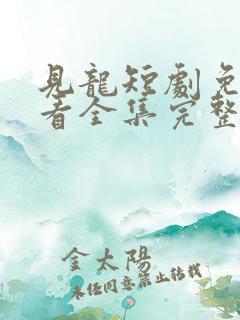 見龍短劇免
看全集完整
金太陽
未經同意禁止轉載